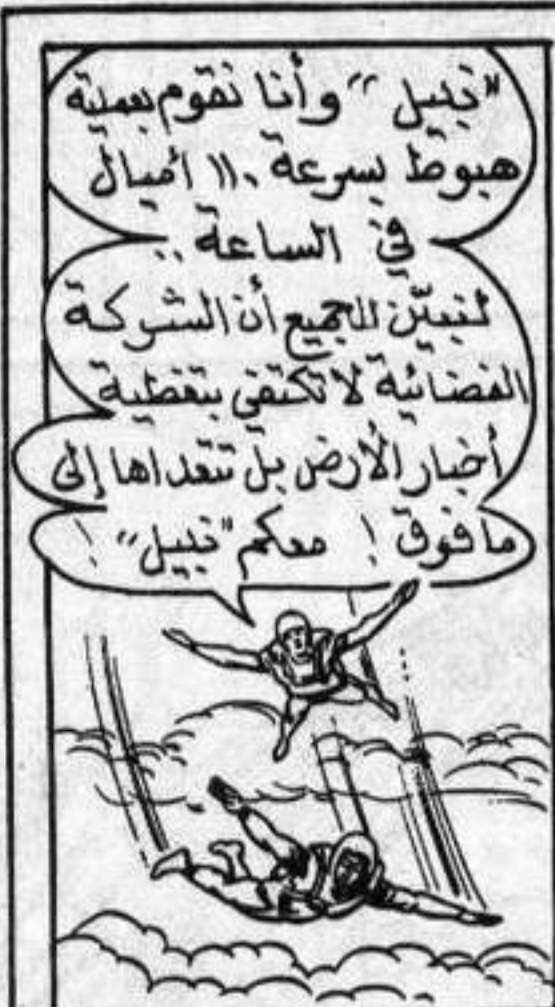 "نبيل" وأنا نقوم بعملية
هبوط بسرعة ١١٠ أميال
في الساعة ..
لنبيّن للجميع أن الشركة
الفضائية لا تكتفي بتغطية
أخبار الأرض بل تتعداها إلى
ما فوق ! معكم "نبيل"